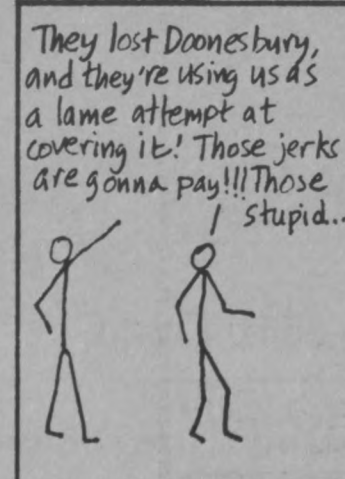 They lost Doonesbury,
and they're using us as
a lame attempt at
covering it! Those jerks
are gonna pay!!! Those
stupid..